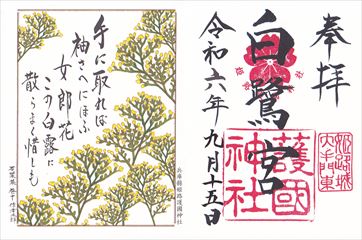 奉拝
白鷺宮
護國
神社
姫路城
大手門東
令和六年九月十五日
手に取れば
袖さへにほふ
女郎花
この白露に
散らまく惜しも
兵庫縣姫路護國神社